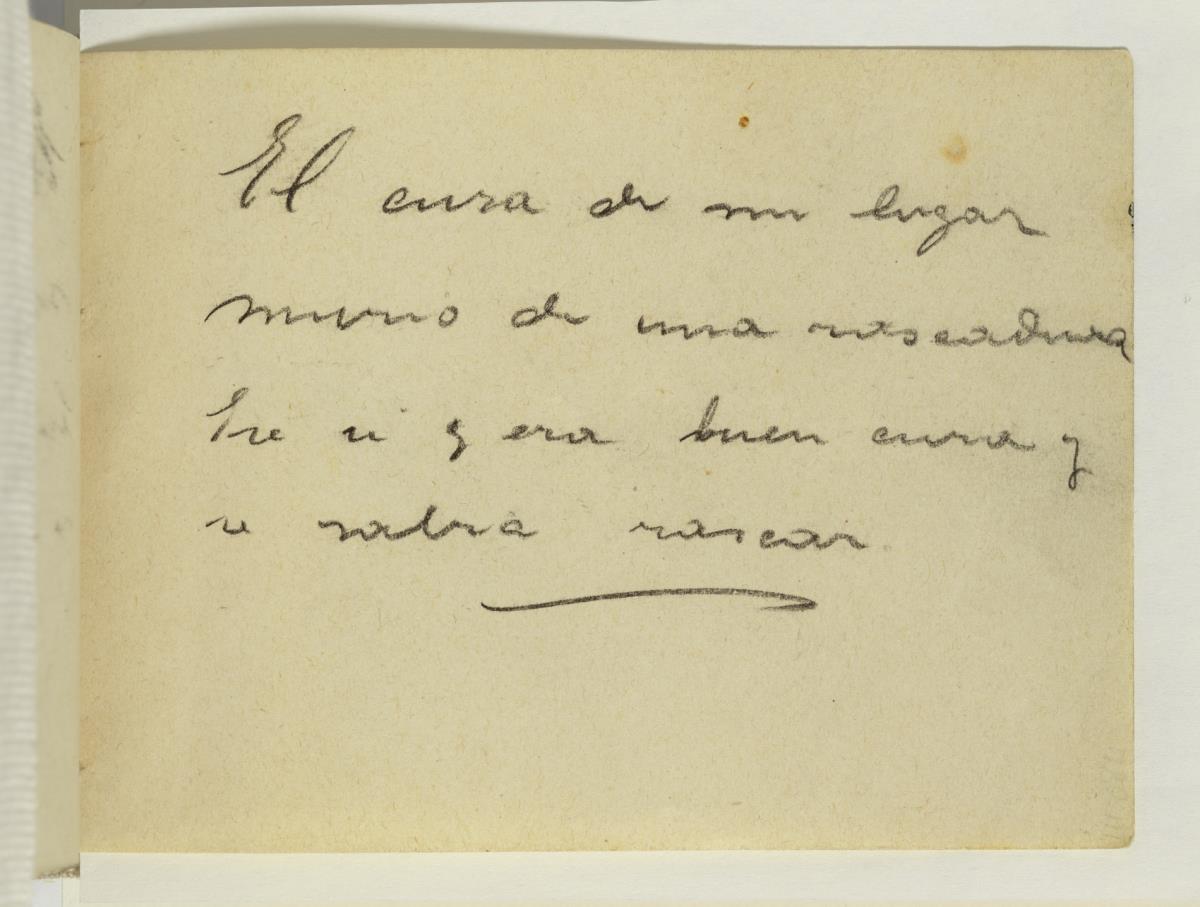 El cura de mi lugar
murio de una rascadura
Ire si y era buen cura y
si sabia rascar